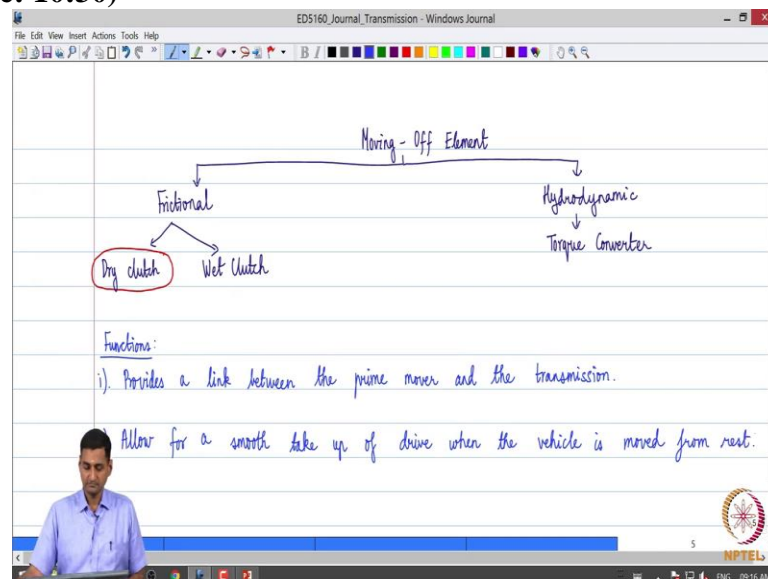 ED5160_Journal_Transmission - Windows Journal
File Edit View Insert Actions Tools Help
Moving - Off Element
Frictional
Hydrodynamic
Dry clutch
Wet Clutch
Torque Converter
Functions:
i). Provides a link between the prime mover and the transmission.
Allow for a smooth take up of drive when the vehicle is moved from rest.
5
NPTEL
ENG 09:16 AM